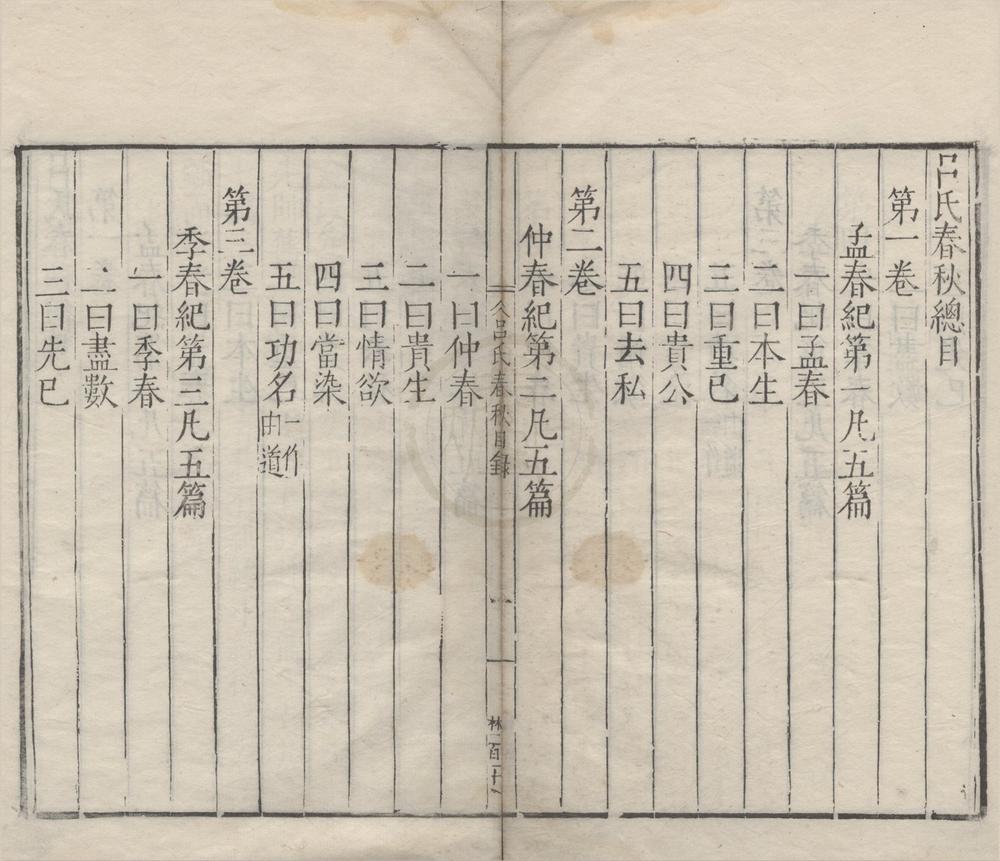 呂氏春秋總目
第一卷
孟春紀第一凡五篇
一曰孟春
二曰本生
三曰重已
四曰貴公
五曰去私
第二卷
仲春紀第二凡五篇
呂氏春秋目錄
一
一曰仲春
二曰貴生
三曰情欲
四曰當染
五曰功名一作由道
第三卷
季春紀第三凡五篇
一曰季春
二曰盡數
三曰先已